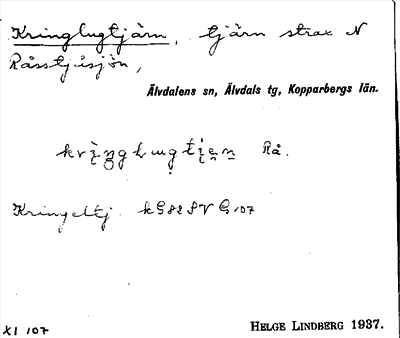 Kringlugtjärn, tjärn strax N
Råsstjåsjön,
Älvdalens sn, Älvdals tg, Kopparbergs län.
Rå.
Kringeltj. kG82SV G.107
XI 107
HELGE LINDBERG 1937.